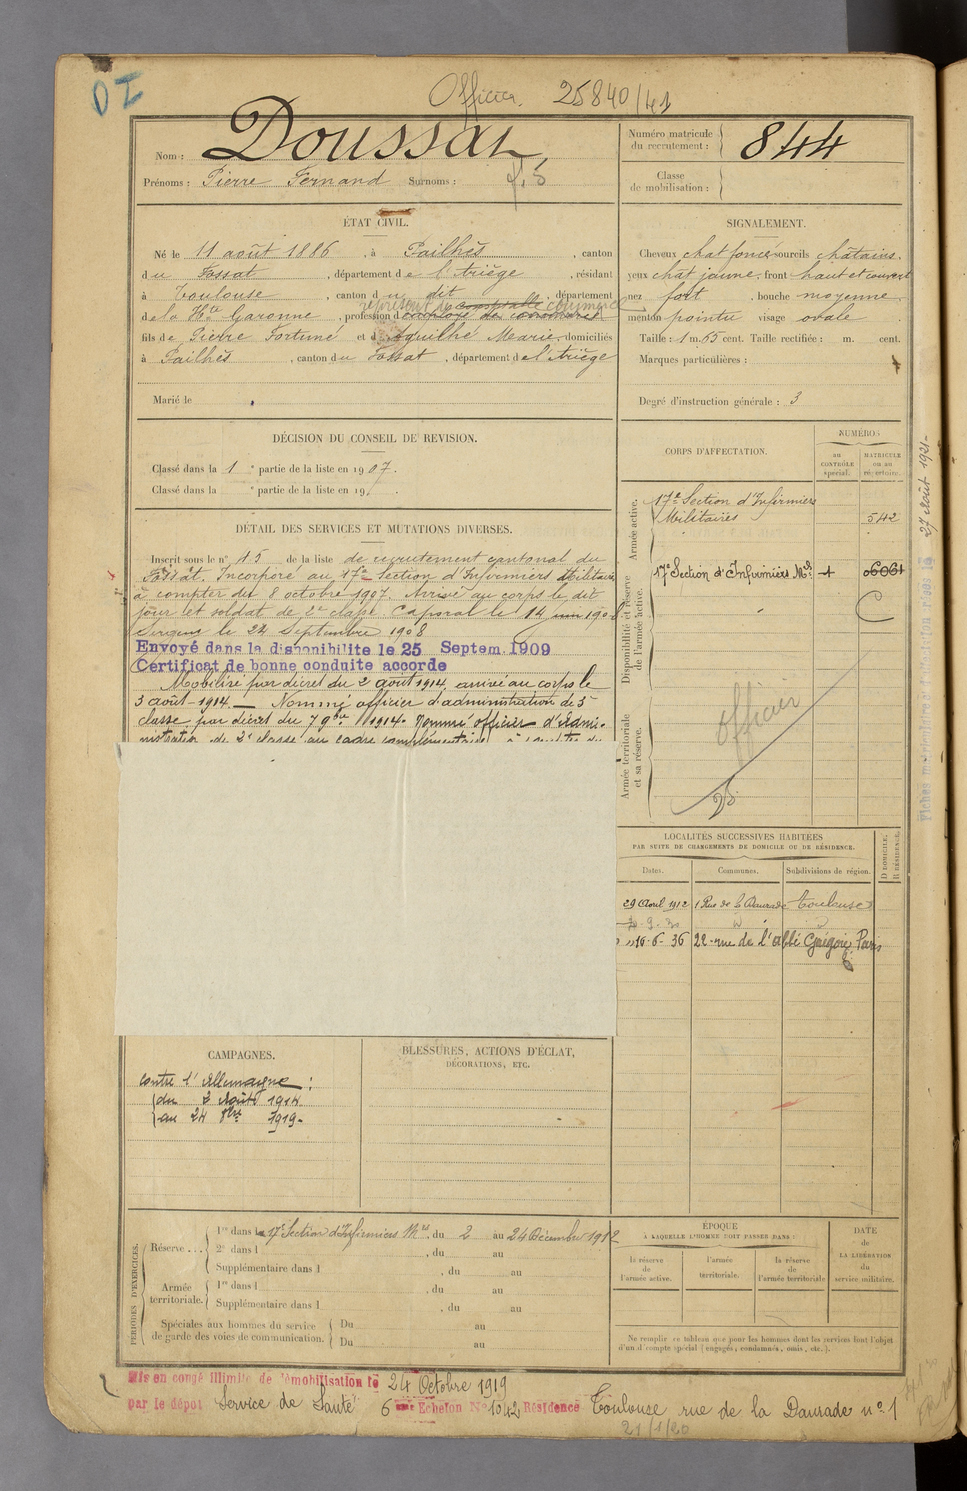 Officier. 25840/41
Nom : Doussat
Prénoms : Pierre Fernand Surnoms :
Numéro matricule du recrutement : 844
Classe de mobilisation :
ÉTAT CIVIL.
Né le 11 août 1886, à Pailhès, canton
du Fossat, département de l'Ariège, résidant
à Toulouse, canton du dit, département
de la Hte Garonne, profession d
fils de Pierre Fortuné et d Marie domiciliés
à Pailhès, canton du Fossat, département de l'Ariège
Marié le
SIGNALEMENT.
Cheveux chat foncé sourcils châtains.
yeux chat jaune, front haut et couvert
nez fort, bouche moyenne,
menton pointu visage ovale
Taille : 1 m. 65 cent. Taille rectifiée : m. cent.
Marques particulières :
Degré d'instruction générale : 3
DÉCISION DU CONSEIL DE REVISION.
Classé dans la 1e partie de la liste en 1907.
Classé dans la e partie de la liste en 19 .
DÉTAIL DES SERVICES ET MUTATIONS DIVERSES.
Inscrit sous le n° 45 de la liste de recrutement cantonal du
Fossat. Incorporé au 17e Section d'Infirmiers Militaires
à compter du 8 octobre 1907. Arrivé au corps le dit
jour et soldat de 2e classe. Caporal le 14 juin 1908
Sergent le 24 Septembre 1908
Envoyé dans la disponibilite le 25 Septem. 1909
Certificat de bonne conduite accorde
Mobilisé par décret du 2 août 1914 arrivé au corps le
3 août 1914. — Nommé officier d'administration de 3e
classe par décret du 7 9bre 1914. Nommé officier d'admi-
nistration de 2e classe au cadre complémentaire à compter du
CORPS D'AFFECTATION.
NUMÉROS
au CONTRÔLE spécial.
MATRICULE ou au répertoire.
Armée active.
17e Section d'Infirmiers
Militaires 542
Disponibilité et réserve de l'armée active.
17e Section d'Infirmiers Mres 1 06061
Armée territoriale et sa réserve.
officier
27 Août 1921-
LOCALITÉS SUCCESSIVES HABITÉES
PAR SUITE DE CHANGEMENTS DE DOMICILE OU DE RÉSIDENCE.
Dates. Communes. Subdivisions de région. D DOMICILE. R RÉSIDENCE.
29 Avril 1912 1 Rue de la Daurade Toulouse
16-6-36 22 rue de l'abbé Grégoire Paris
CAMPAGNES.
contre l'Allemagne :
du 2 Août 1914
au 24 8bre 1919-
BLESSURES, ACTIONS D'ÉCLAT,
DÉCORATIONS, ETC.
PÉRIODES D'EXERCICES.
Réserve ...
1re dans la 17e Section d'Infirmiers Mres, du 2 au 24 Décembre 1912
2e dans l , du au
Supplémentaire dans l , du au
Armée territoriale.
1re dans l , du au
Supplémentaire dans l , du au
Spéciales aux hommes du service de garde des voies de communication.
Du au
Du au
ÉPOQUE
À LAQUELLE L'HOMME DOIT PASSER DANS :
la réserve de l'armée active.
l'armée territoriale.
la réserve de l'armée territoriale
DATE de LA LIBÉRATION du service militaire.
Ne remplir ce tableau que pour les hommes dont les services font l'objet
d'un décompte spécial (engagés, condamnés, omis, etc.).
Mis en congé illimité de démobilisation le 24 Octobre 1919
par le dépôt Service de Santé 6eme Echelon N° 1042 Résidence Toulouse rue de la Daurade n° 1
21/1/20